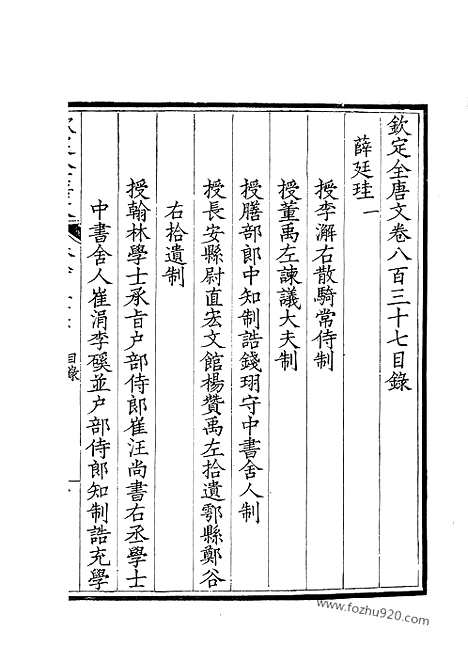 欽定全唐文卷八百三十七目錄
薛廷珪一
授李澥右散騎常侍制
授董禹左諫議大夫制
授膳部郎中知制誥錢珝守中書舍人制
授長安縣尉直宏文館楊贊禹左拾遺鄠縣鄭谷
右拾遺制
授翰林學士承旨户部侍郎崔汪尚書右丞學士
中書舍人崔涓李磎並户部侍郎知制誥充學
目錄
www.fozhu920.com